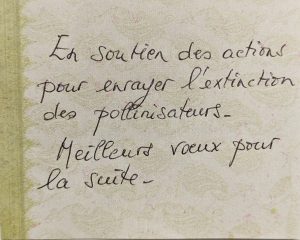 En soutien des actions
pour enrayer l'extinction
des pollinisateurs.
Meilleurs vœux pour
la suite.